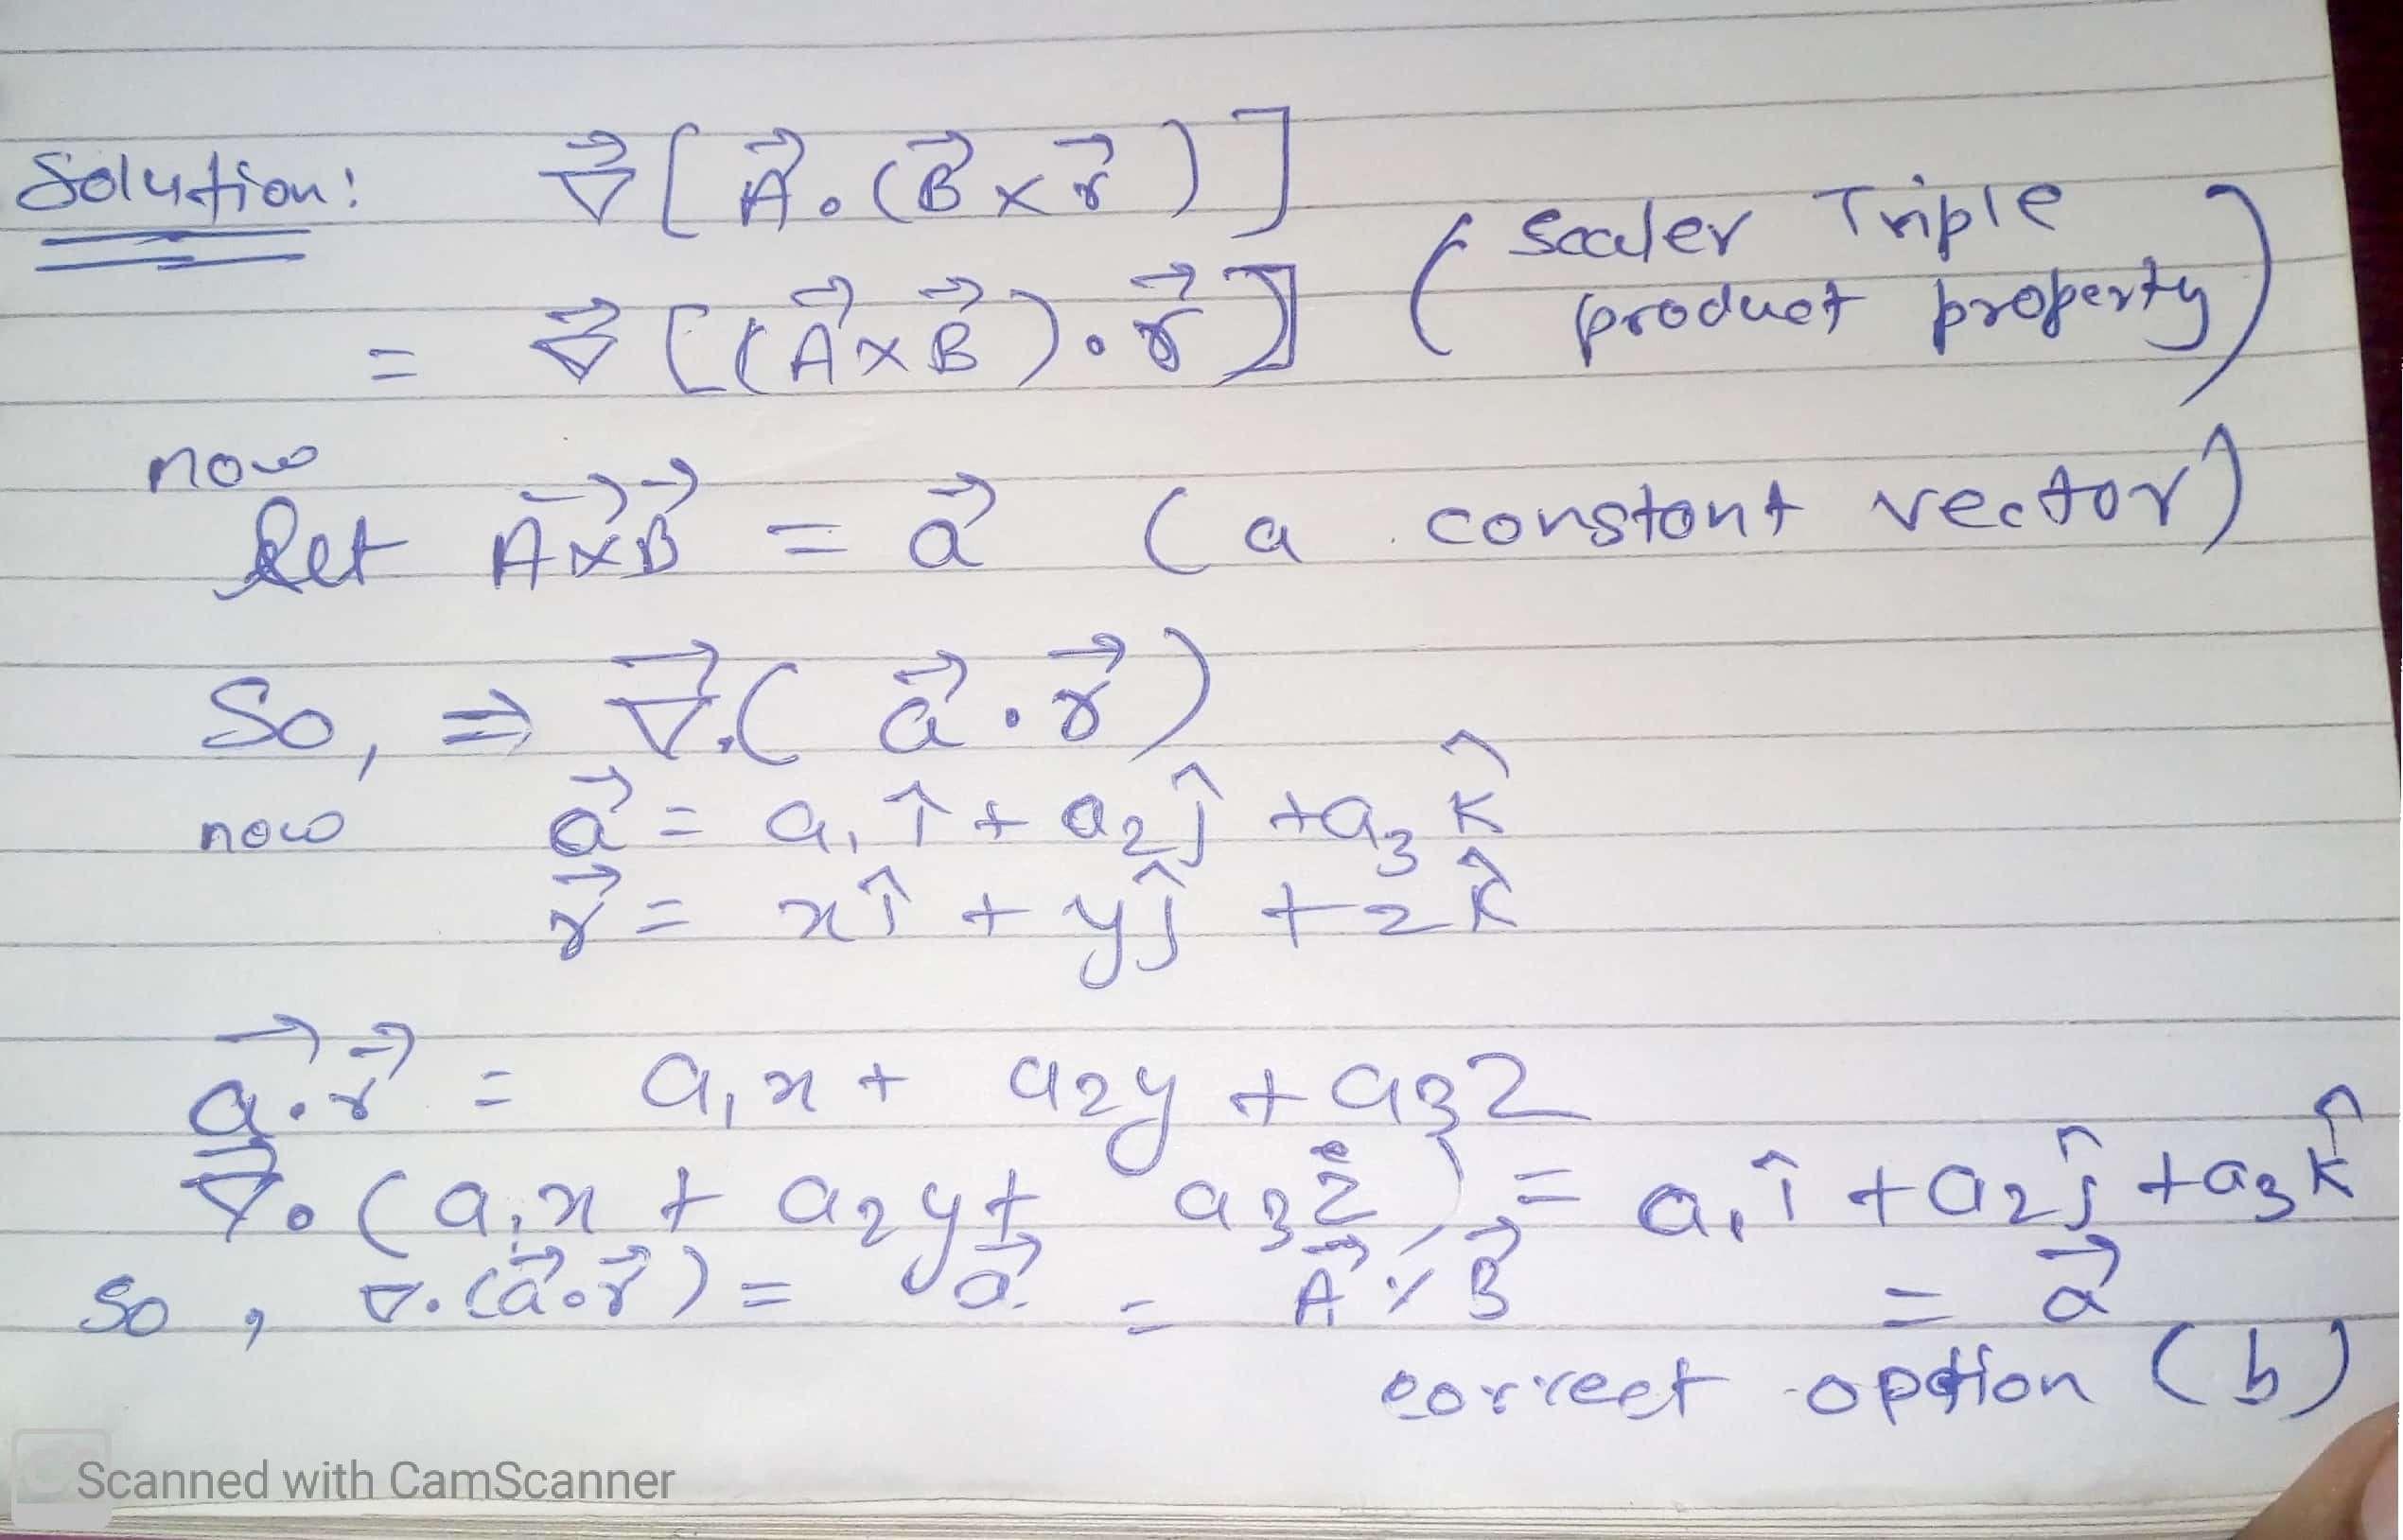 Solution: ∇⃗ [ A⃗ . ( B⃗ × r⃗ ) ]
= ∇⃗ [ ( A⃗ × B⃗ ) . r⃗ ] ( Scaler Triple
product property )
now
Let A⃗ × B⃗ = a⃗ ( a constant vector )
So, ⇒ ∇⃗ . ( a⃗ . r⃗ )
now a⃗ = a₁ î + a₂ ĵ + a₃ k̂
r⃗ = x î + y ĵ + z k̂
a⃗ . r⃗ = a₁x + a₂y + a₃z
∇⃗ . ( a₁x + a₂y + a₃z ) = a₁ î + a₂ ĵ + a₃ k̂
So , ∇ . ( a⃗ . r⃗ ) = a⃗ = A⃗ × B⃗ = a⃗
correct option (b)
Scanned with CamScanner